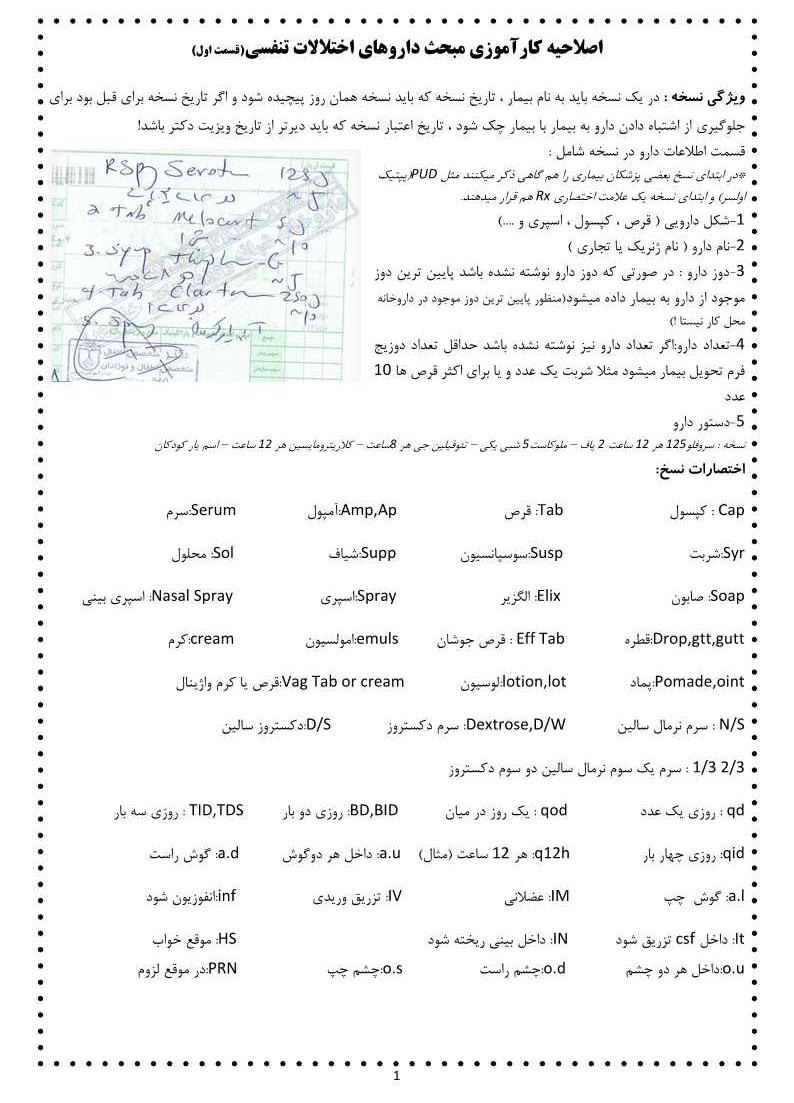 اصلاحیه کارآموزی مبحث داروهای اختلالات تنفسی(قسمت اول)
ویژگی نسخه : در یک نسخه باید به نام بیمار ، تاریخ نسخه که باید نسخه همان روز پیچیده شود و اگر تاریخ نسخه برای قبل بود برای
جلوگیری از اشتباه دادن دارو به بیمار با بیمار چک شود ، تاریخ اعتبار نسخه که باید دیرتر از تاریخ ویزیت دکتر باشد!
قسمت اطلاعات دارو در نسخه شامل :
*در ابتدای نسخ بعضی پزشکان بیماری را هم گاهی ذکر میکنند مثل PUD(پپتیک
اولسر) و ابتدای نسخه یک علامت اختصاری Rx هم قرار میدهند.
1-شکل دارویی ( قرص ، کپسول ، اسپری و ....)
2-نام دارو ( نام ژنریک یا تجاری )
3-دوز دارو : در صورتی که دوز دارو نوشته نشده باشد پایین ترین دوز
موجود از دارو به بیمار داده میشود(منظور پایین ترین دوز موجود در داروخانه
محل کار نیستا !)
4-تعداد دارو:اگر تعداد دارو نیز نوشته نشده باشد حداقل تعداد دوزیج
فرم تحویل بیمار میشود مثلا شربت یک عدد و یا برای اکثر قرص ها 10
عدد
5-دستور دارو
2 Tab
3. Syp
4 Tab
نسخه : سروفلو125 هر 12 ساعت 2 پاف – ملوکاست5 شبی یکی – تئوفیلین جی هر 8ساعت – کلاریترومایسین هر 12 ساعت – اسم یار کودکان
اختصارات نسخ:
Cap : کپسول Tab: قرص Amp,Ap:آمپول Serum:سرم
Syr:شربت Susp:سوسپانسیون Supp:شیاف Sol: محلول
Soap: صابون Elix: الگزیر Spray:اسپری Nasal Spray: اسپری بینی
Drop,gtt,gutt:قطره Eff Tab : قرص جوشان emuls:امولسیون cream:کرم
Pomade,oint:پماد lotion,lot:لوسیون Vag Tab or cream:قرص یا کرم واژینال
N/S : سرم نرمال سالین Dextrose,D/W: سرم دکستروز D/S:دکستروز سالین
1/3 2/3 : سرم یک سوم نرمال سالین دو سوم دکستروز
qd : روزی یک عدد qod : یک روز در میان BD,BID: روزی دو بار TID,TDS : روزی سه بار
qid: روزی چهار بار q12h: هر 12 ساعت (مثال) a.u: داخل هر دوگوش a.d: گوش راست
a.l: گوش چپ IM: عضلانی IV: تزریق وریدی inf:انفوزیون شود
It: داخل csf تزریق شود IN: داخل بینی ریخته شود HS: موقع خواب
o.u:داخل هر دو چشم o.d:چشم راست o.s:چشم چپ PRN:در موقع لزوم
1